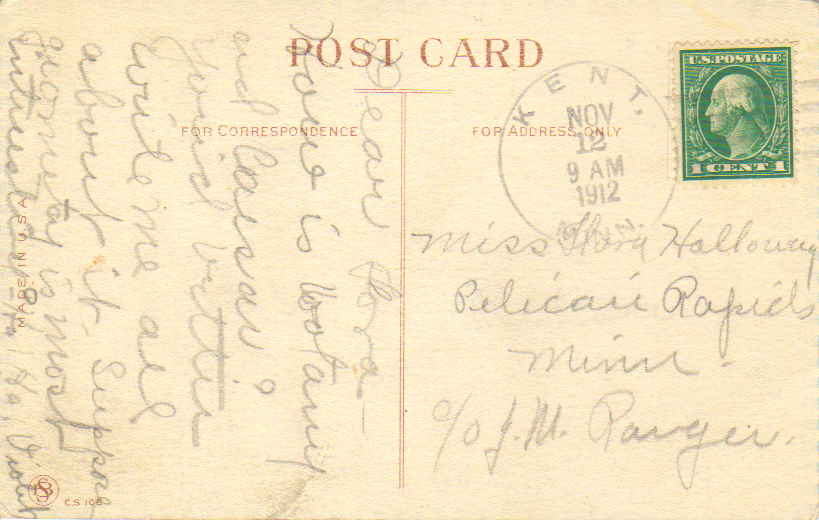 POST CARD
FOR CORRESPONDENCE
FOR ADDRESS ONLY
U.S. POSTAGE
1 CENT 1
KENT.
NOV
12
9 AM
1912
MINN.
Miss Flora Halloway
Pelican Rapids
Minn.
c/o J. M. Ranger.
Dear Flora—
How is botany
and Caesar?
You'd better
write me all
about it. Suppose
geometry is most
interesting
Violet
MADE IN U.S.A.
C.S. 108